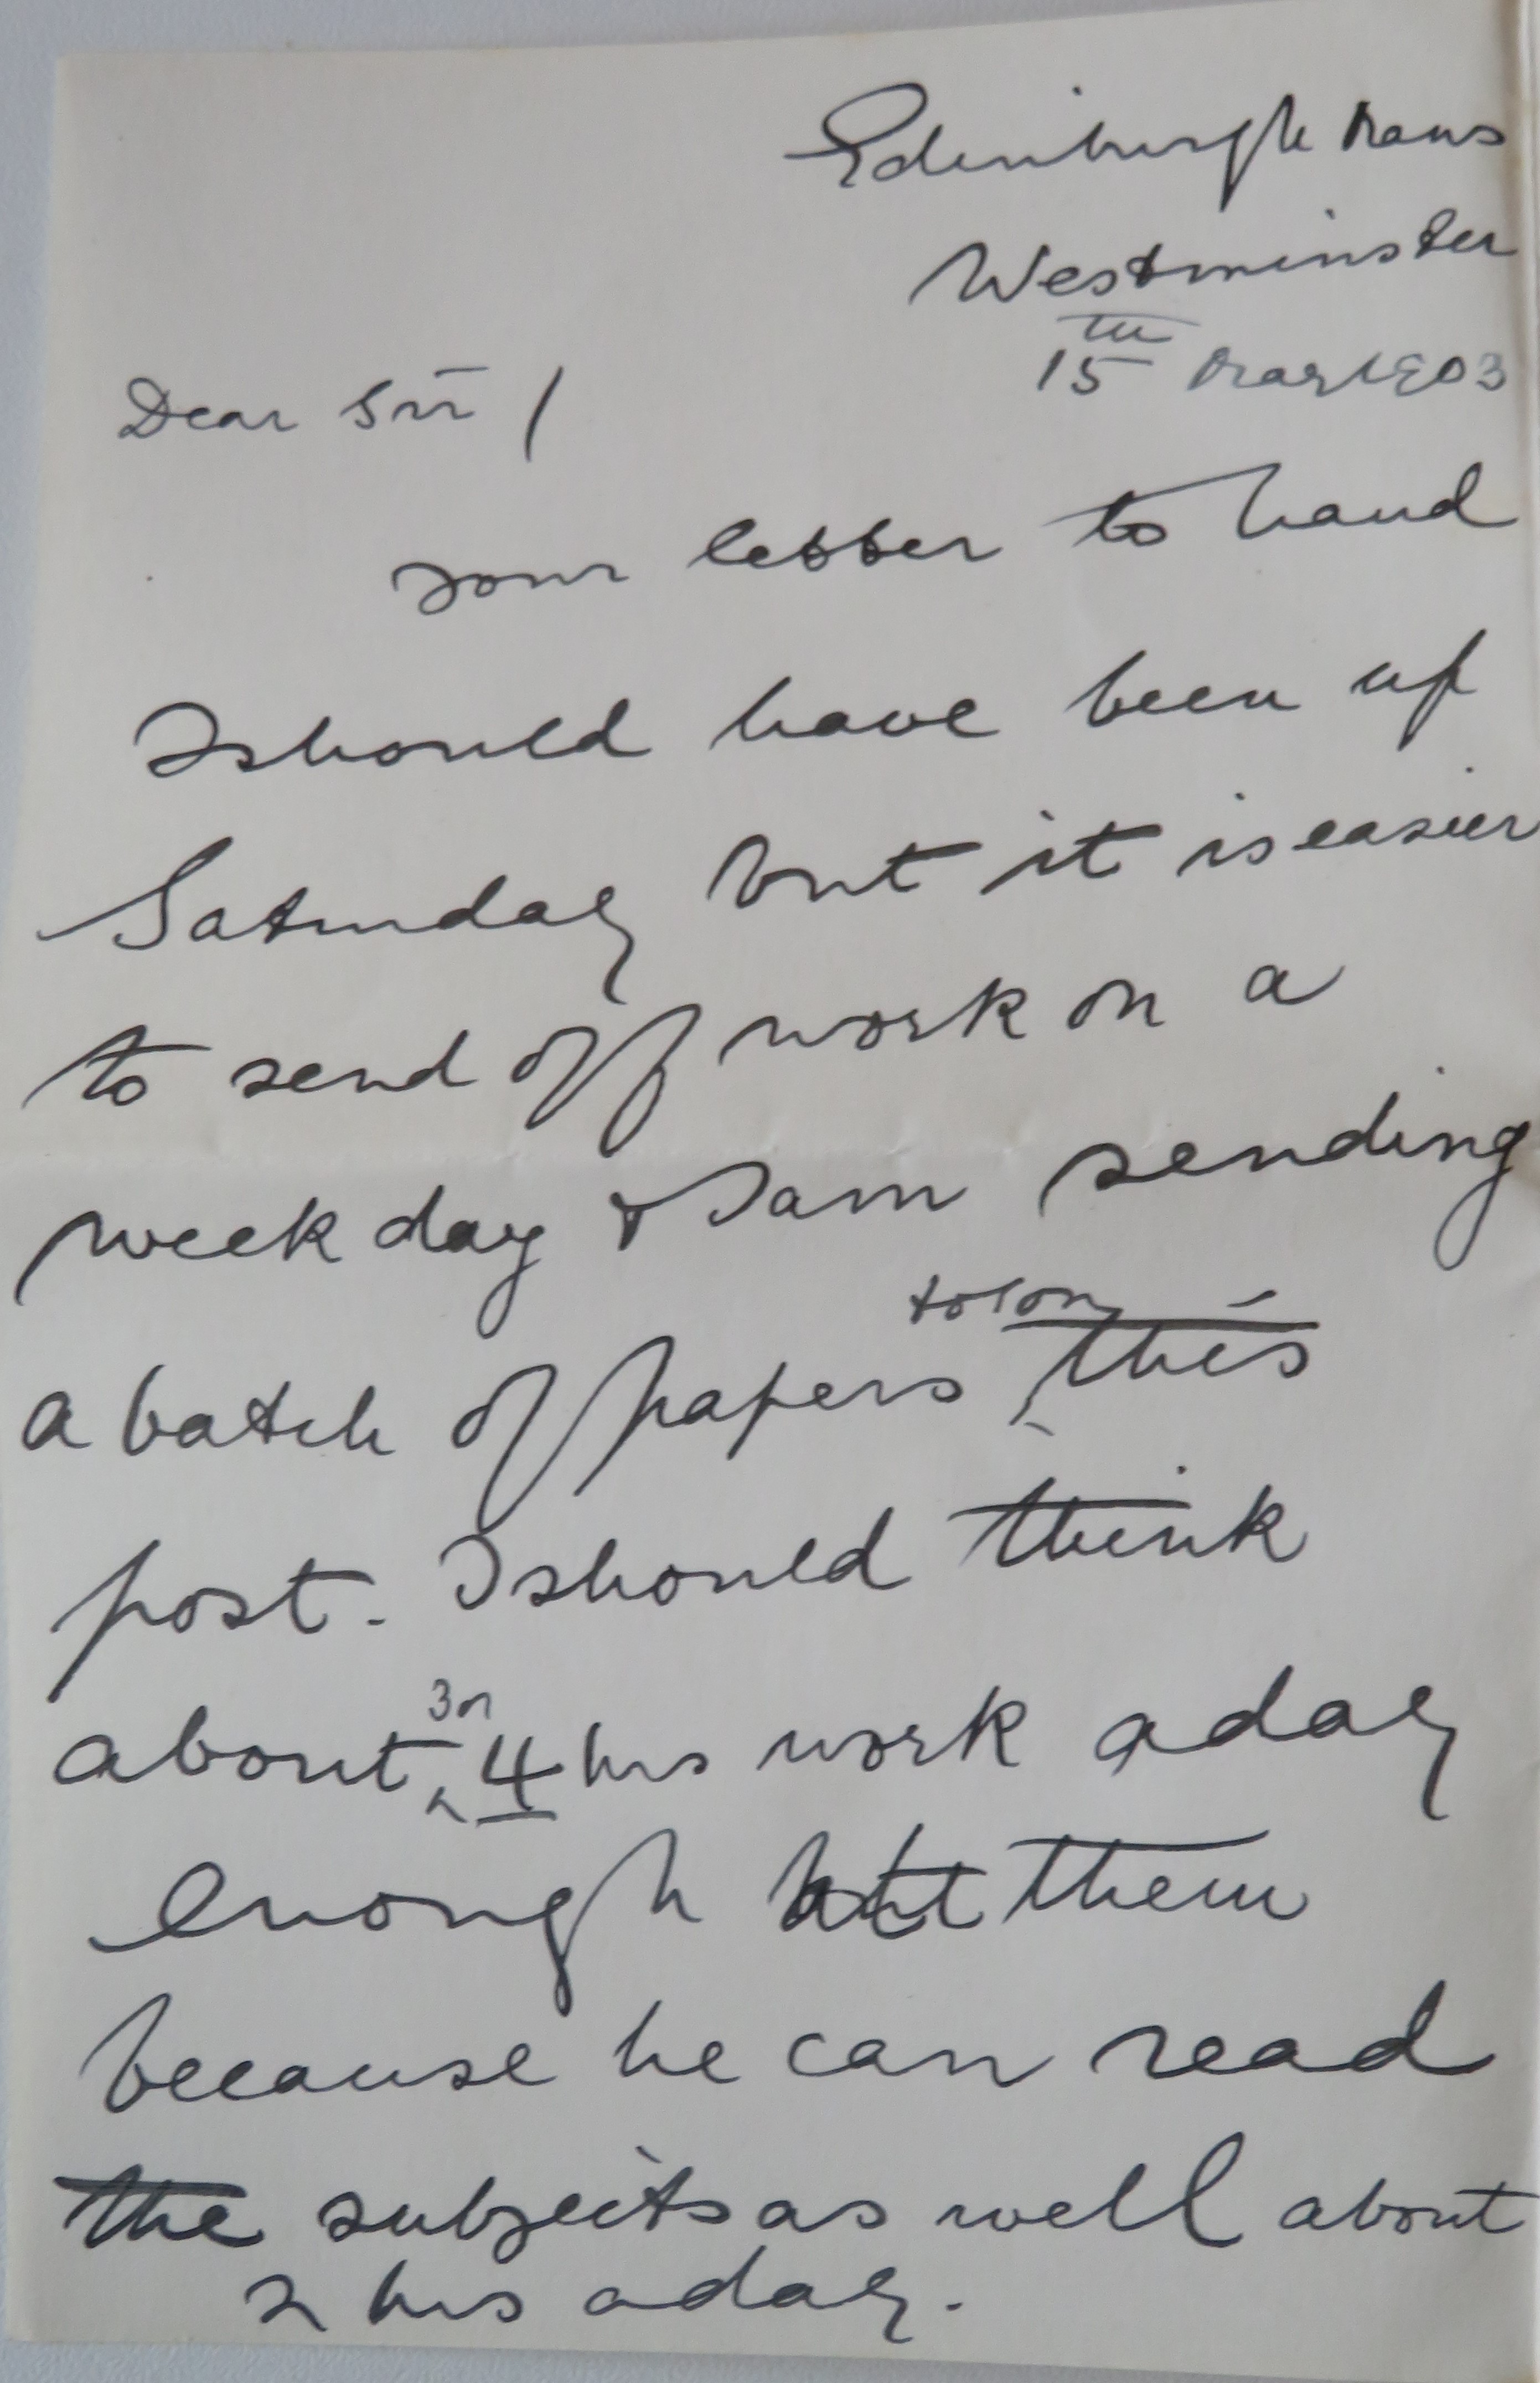 Edinburgh Mans
Westminster
15th Mar 1903
Dear Sir /
Your letter to hand
I should have been up
Saturday but it is easier
to send off work on a
week day & I am sending
a batch of papers this
post. I should think
about 3 or 4 hrs work a day
enough them
because he can read
the subjects as well about
2 hrs a day.